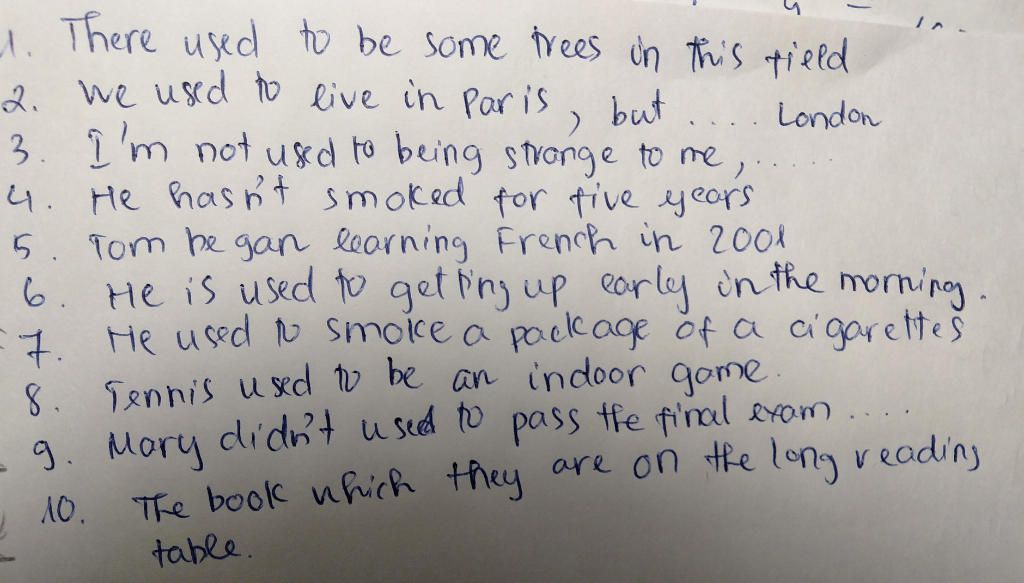 1. There used to be some trees in this field
2. We used to live in Paris, but .... London
3. I'm not used to being strange to me,......
4. He hasn't smoked for five years
5. Tom began learning French in 2001
6. He is used to getting up early in the morning.
7. He used to smoke a package of a cigarettes
8. Tennis used to be an indoor game.
9. Mary didn't used to pass the final exam ....
10. The book which they are on the long reading
table.